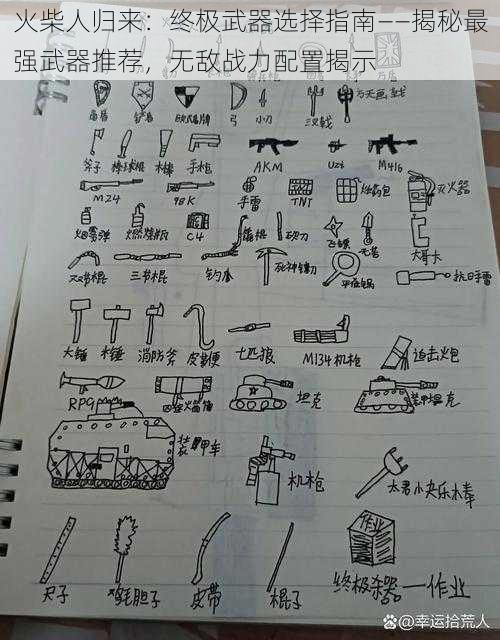 火柴人归来：终极武器选择指南——揭秘最
强武器推荐，无敌战力配置揭示
盾 弓 小刀 三叉戟 方天画戟
斧子 棒球棍 木棒 手枪 AKM Uzi M416
M24 98K 手雷 TNT 炸药包 灭火器
烟雾弹 燃烧瓶 C4 撬棍 砍刀 飞镖 大哥大
双节棍 三节棍 钓鱼 死神镰刀 平底锅 抗日手雷
大锤 木锤 消防斧 七匹狼 M134机枪 迫击火炮
RPG 四连火箭筒 坦克 装甲坦克
装甲车 机枪 太君小快乐木奉
尺子 鸡毛胆子 皮带 棍子 作业 终极杀器——作业
@幸运拾荒人